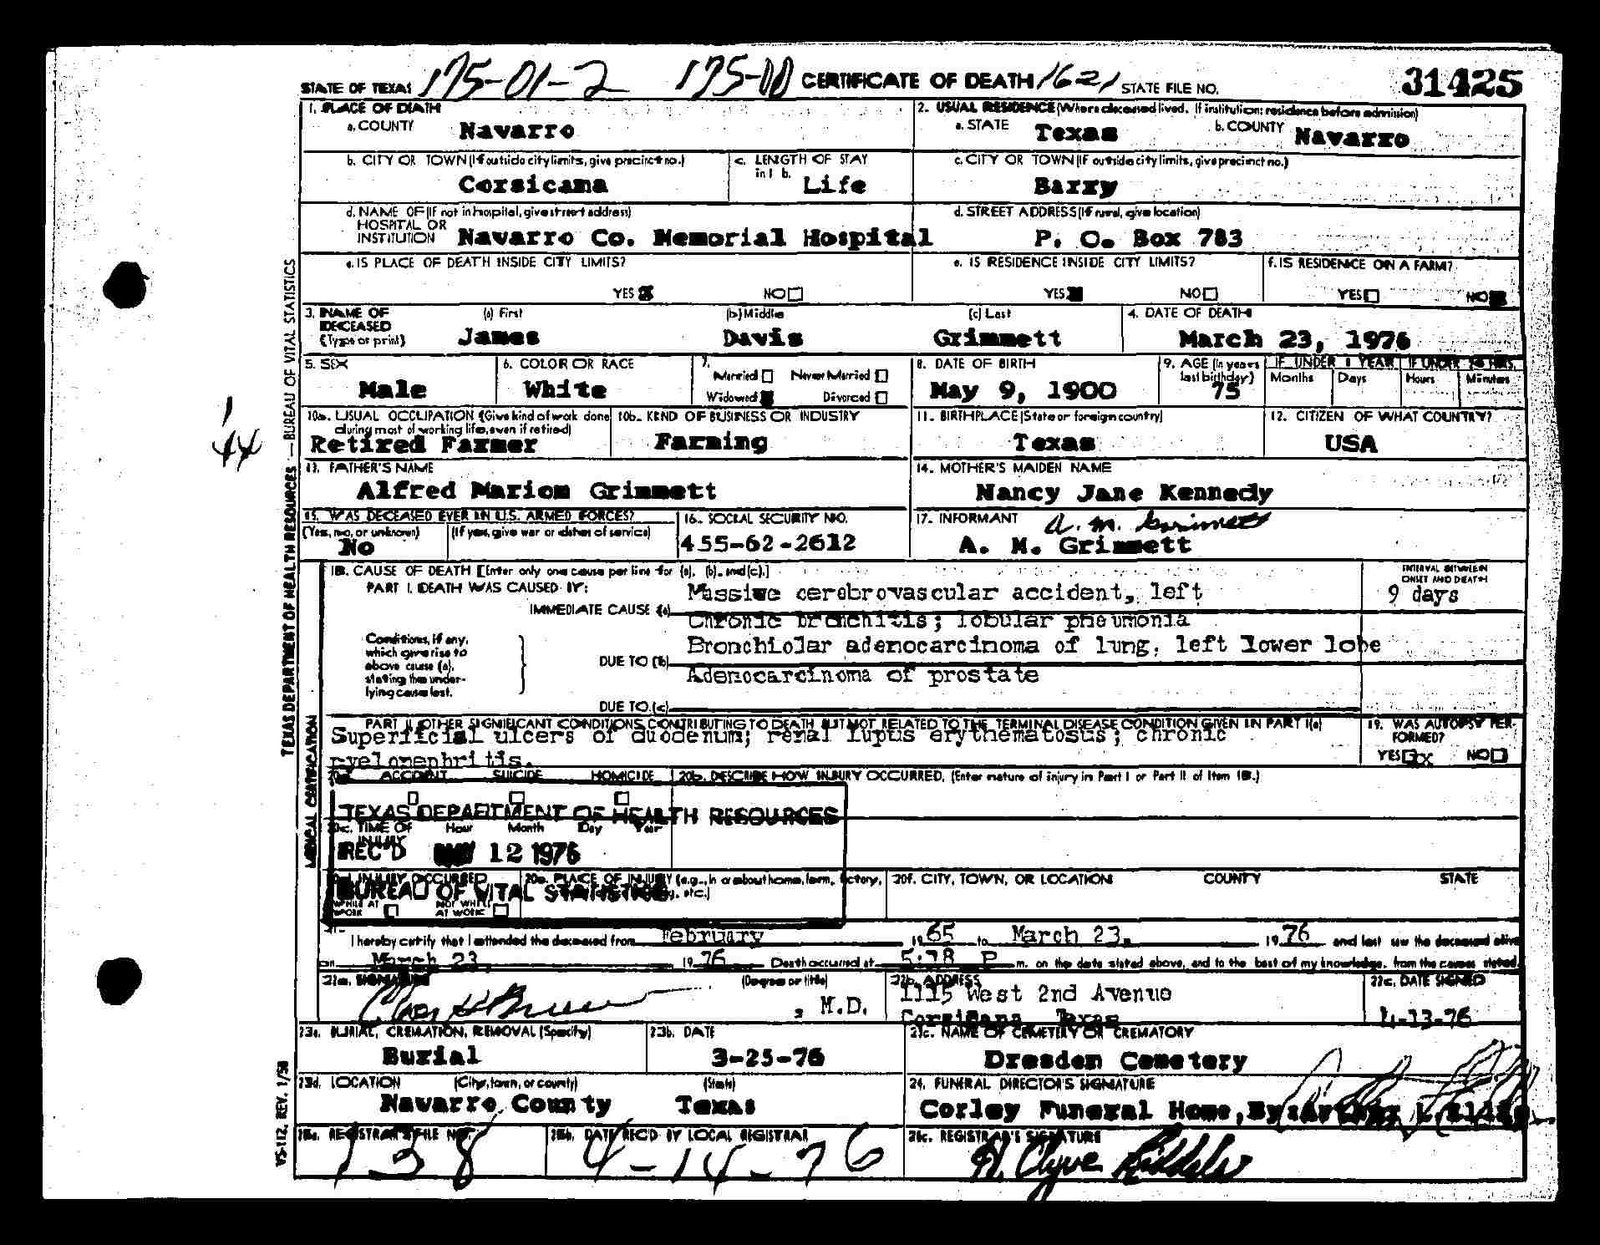 STATE OF TEXAS 175-01-2 175-00 CERTIFICATE OF DEATH 1621 STATE FILE NO. 31425
1. PLACE OF DEATH
a. COUNTY Navarro
2. USUAL RESIDENCE (Where deceased lived. If institution: residence before admission)
a. STATE Texas b. COUNTY Navarro
b. CITY OR TOWN (If outside city limits, give precinct no.) Corsicana
c. LENGTH OF STAY in 1 b. Life
c. CITY OR TOWN (If outside city limits, give precinct no.) Barry
d. NAME OF (If not in hospital, give street address) HOSPITAL OR INSTITUTION Navarro Co. Memorial Hospital
d. STREET ADDRESS (If rural, give location) P. O. Box 783
e. IS PLACE OF DEATH INSIDE CITY LIMITS? YES NO
e. IS RESIDENCE INSIDE CITY LIMITS? YES NO
f. IS RESIDENCE ON A FARM? YES NO
3. NAME OF DECEASED (Type or print) (a) First James (b) Middle Davis (c) Last Grimmett
4. DATE OF DEATH March 23, 1976
5. SEX Male
6. COLOR OR RACE White
7. Married Never Married Widowed Divorced
8. DATE OF BIRTH May 9, 1900
9. AGE (in years last birthday) 75 IF UNDER 1 YEAR Months Days IF UNDER 24 HRS. Hours Minutes
1
44
10a. USUAL OCCUPATION (Give kind of work done during most of working life, even if retired) Retired Farmer
10b. KIND OF BUSINESS OR INDUSTRY Farming
11. BIRTHPLACE (State or foreign country) Texas
12. CITIZEN OF WHAT COUNTRY? USA
13. FATHER'S NAME Alfred Marion Grimmett
14. MOTHER'S MAIDEN NAME Nancy Jane Kennedy
15. WAS DECEASED EVER IN U.S. ARMED FORCES? (Yes, no, or unknown) No (If yes, give war or dates of service)
16. SOCIAL SECURITY NO. 455-62-2612
17. INFORMANT A. M. Grimmett
A. M. Grimmett
18. CAUSE OF DEATH [Enter only one cause per line for (a), (b), and (c).]
INTERVAL BETWEEN ONSET AND DEATH
PART I. DEATH WAS CAUSED BY:
IMMEDIATE CAUSE (a) Massive cerebrovascular accident, left 9 days
Chronic bronchitis; lobular pneumonia
Conditions, if any, which give rise to above cause (a), stating the underlying cause last.
DUE TO (b) Bronchiolar adenocarcinoma of lung, left lower lobe
Adenocarcinoma of prostate
DUE TO (c)
PART II. OTHER SIGNIFICANT CONDITIONS CONTRIBUTING TO DEATH BUT NOT RELATED TO THE TERMINAL DISEASE CONDITION GIVEN IN PART I(a)
Superficial ulcers of duodenum; renal lupus erythematosus; chronic
pyelonephritis.
19. WAS AUTOPSY PERFORMED? YES X NO
20a. ACCIDENT SUICIDE HOMICIDE
20b. DESCRIBE HOW INJURY OCCURRED. (Enter nature of injury in Part I or Part II of Item 18.)
TEXAS DEPARTMENT OF HEALTH RESOURCES
20c. TIME OF INJURY Hour Month Day Year
REC'D MAY 12 1976
BUREAU OF VITAL STATISTICS
20d. INJURY OCCURRED WHILE AT WORK NOT WHILE AT WORK
20e. PLACE OF INJURY (e.g., in or about home, farm, factory, etc.)
20f. CITY, TOWN, OR LOCATION COUNTY STATE
I hereby certify that I attended the deceased from February 1965 to March 23, 1976 and last saw the deceased alive
on March 23, 1976 Death occurred at P m. on the date stated above, and to the best of my knowledge, from the causes stated.
22a. SIGNATURE (Degree or title) , M.D.
22b. ADDRESS 1115 West 2nd Avenue
Corsicana Texas
22c. DATE SIGNED 4-13-76
23a. BURIAL, CREMATION, REMOVAL (Specify) Burial
23b. DATE 3-25-76
23c. NAME OF CEMETERY OR CREMATORY Dresden Cemetery
23d. LOCATION (City, town, or county) Navarro County (State) Texas
24. FUNERAL DIRECTOR'S SIGNATURE
Corley Funeral Home, By:
25a. REGISTRAR'S FILE NO. 138
25b. DATE REC'D BY LOCAL REGISTRAR 4-14-76
25c. REGISTRAR'S SIGNATURE
TEXAS DEPARTMENT OF HEALTH RESOURCES — BUREAU OF VITAL STATISTICS
MEDICAL CERTIFICATION
VS-112, REV. 1/58